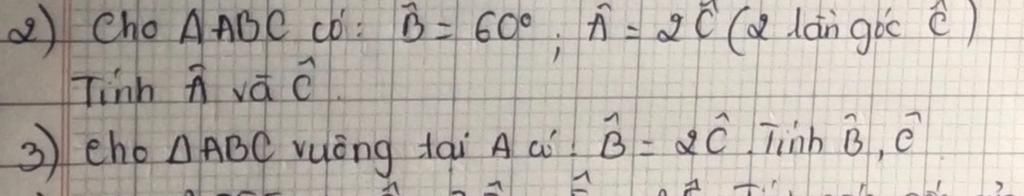 2) Cho ΔABC có: B̂ = 60°; Â = 2Ĉ (2 lần góc Ĉ)
Tính Â và Ĉ.
3) Cho ΔABC vuông tại A có: B̂ = 2Ĉ. Tính B̂, Ĉ